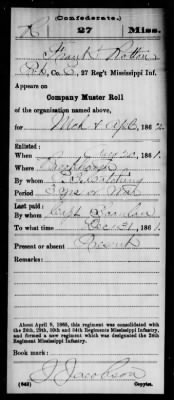 (Confederate.)
R 27 Miss.
Frank Rotton
Pvt, Co. , 27 Reg't Mississippi Inf.
Appears on
Company Muster Roll
of the organization named above,
for Mch & Apl, 186
Enlisted:
When 20, 186
Where
By whom
Period 3 yrs or War
Last paid:
By whom Capt
To what time Dec 31, 186
Present or absent Present
Remarks:
About April 9, 1865, this regiment was consolidated with
the 24th, 29th, 30th and 34th Regiments Mississippi Infantry,
and formed a new regiment which was designated the 24th
Regiment Mississippi Infantry.
Book mark:
J Jacobson
(642) Copyist.